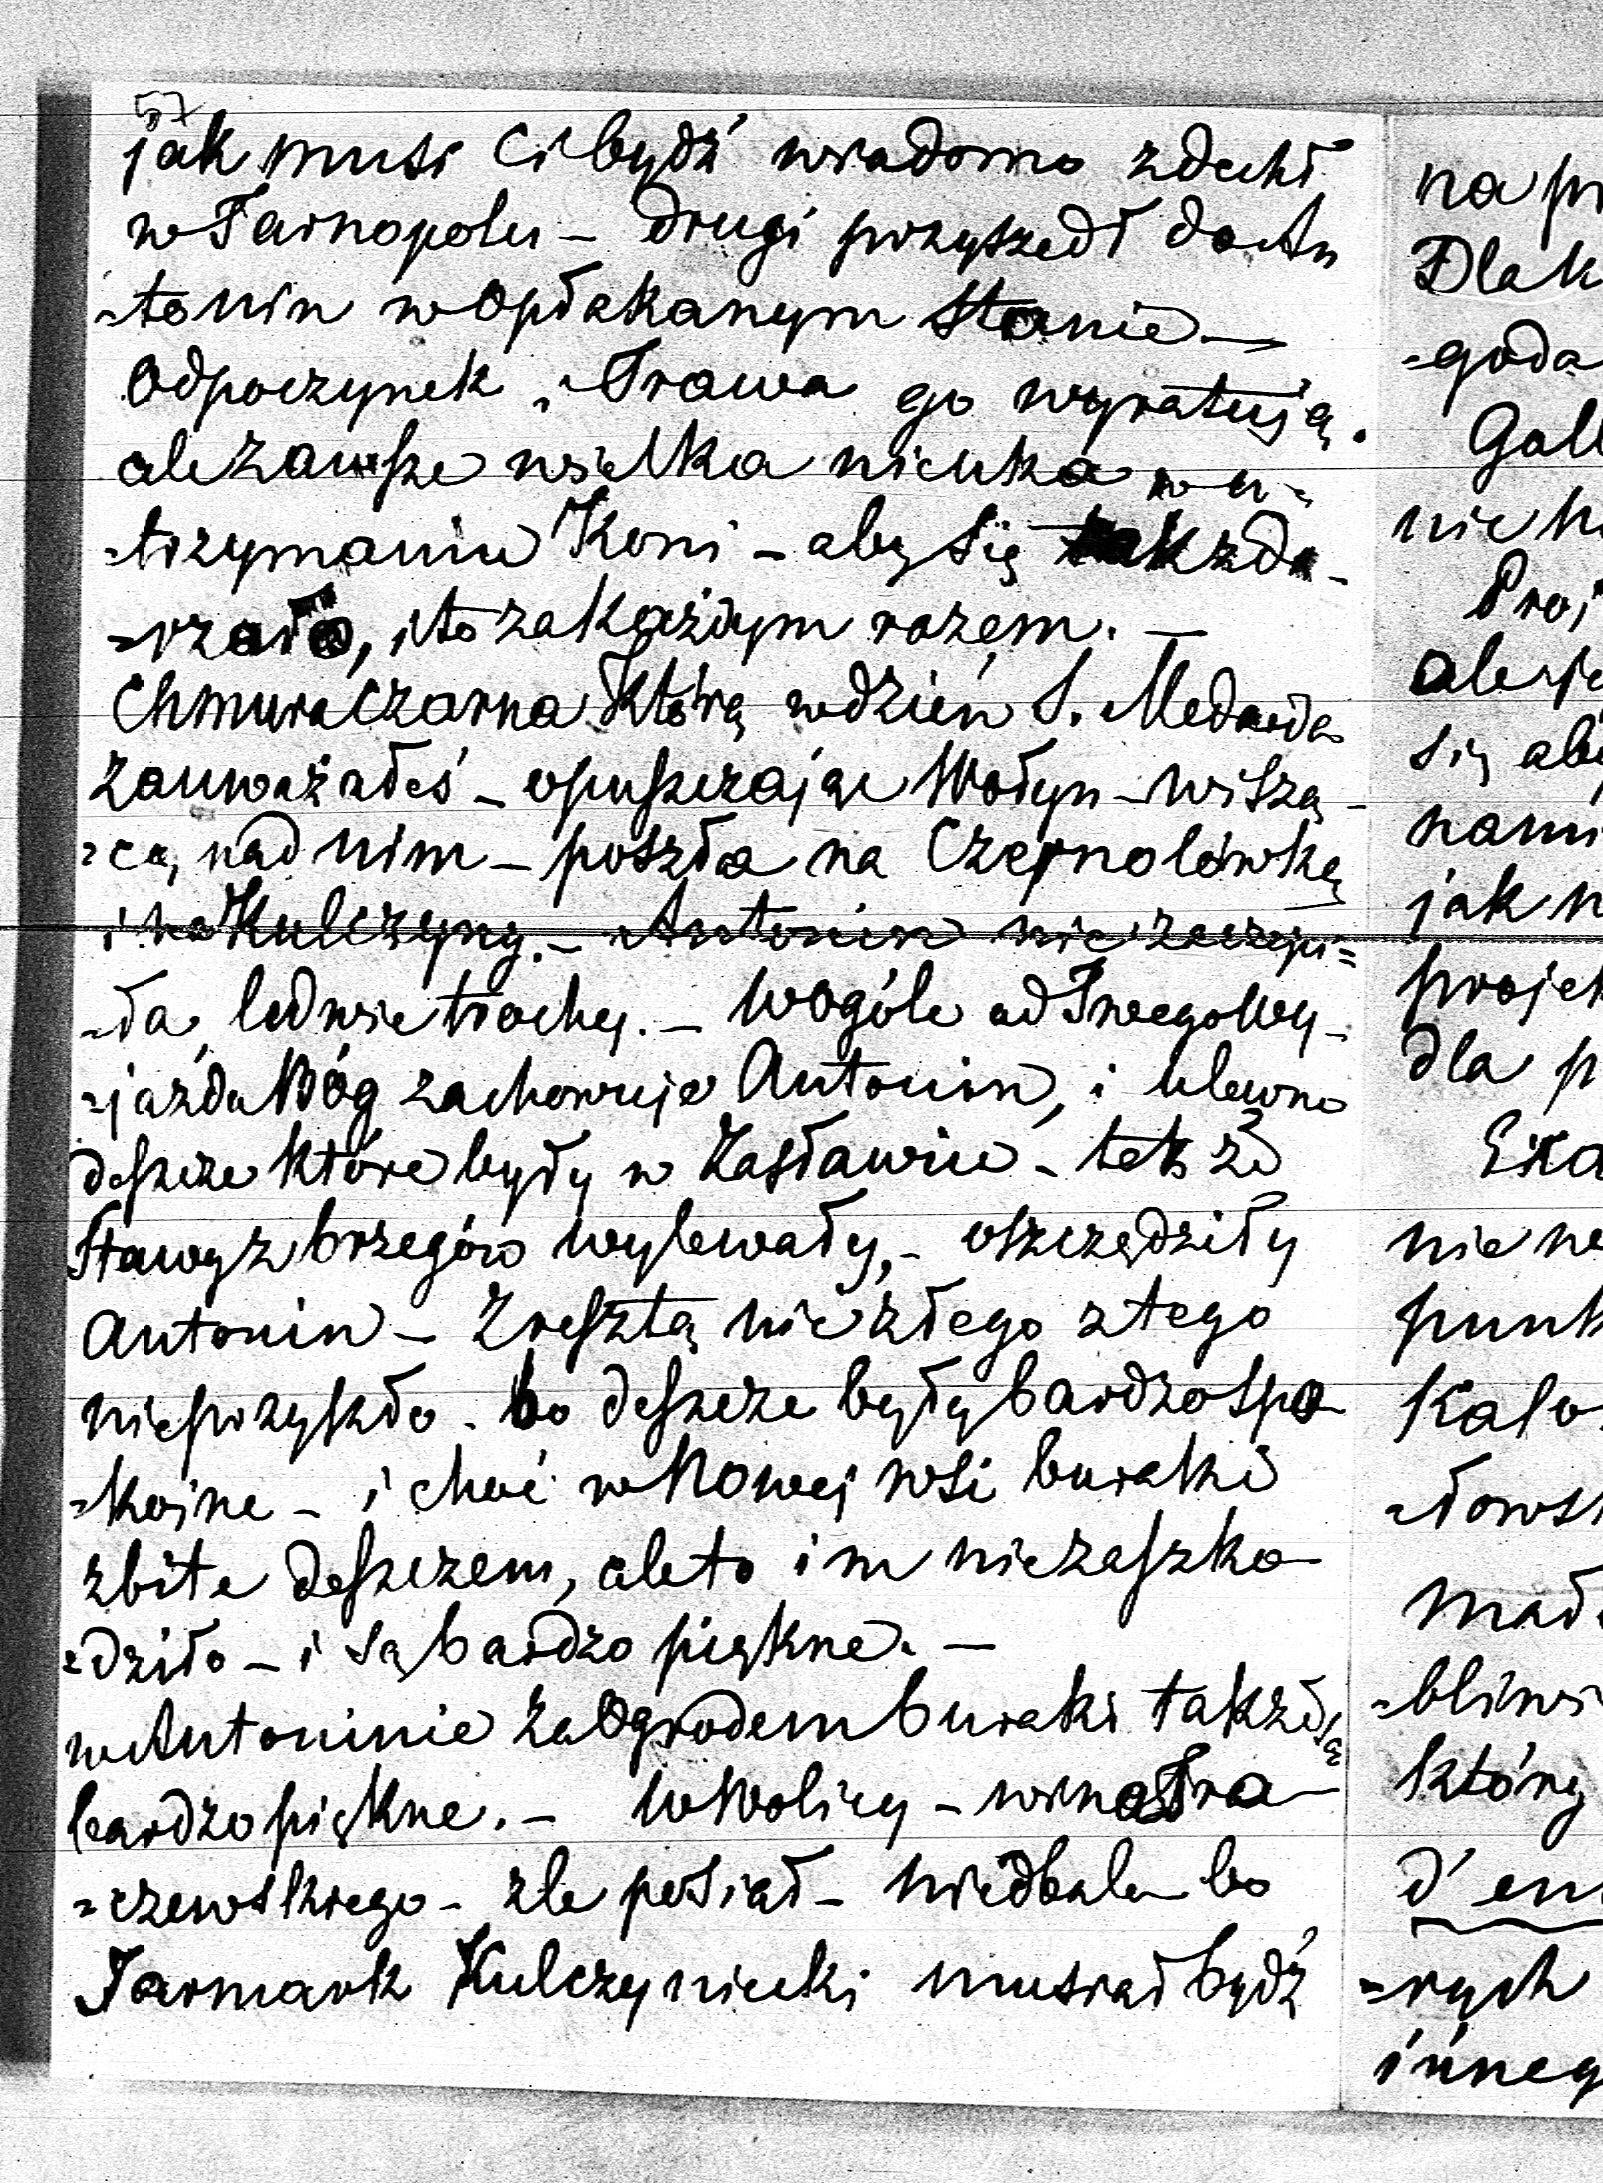 57
jak musi Ci bydź wiadomo zdechł
w Tarnopolu – drugi przyszedł do An
=tonin w opłakanym stanie –
Odpoczynek, Trawa go wyratują.
ale zawsze wielka nieuka w u=
=trzymaniu Koni – aby się tak zda-
=rzało, i to za każdym razem. –
Chmura czarna którą w dzień S. Medarda
zauważałeś – opuszczając Wołyn – wiszą-
=cą nad nim – poszła na Czernolówkę
i na Kulczyny. – Antonin nie zaczepi=
=ła, ledwie trochę. – Wogóle od Twego Wy-
=jazdu Bóg zachowuje Antonin, i ulewne
deszcze które były w Zasławiu – tak że
Stawy z brzegów wylewały, – oszczędziły
Antonin – Zresztą nic złego z tego
nieprzyszło – bo deszcze były bardzo spo-
=kojne – i choć w Nowej wsi buraki
zbite deszczem, ale to im niezaszko-
=dziło – i są bardzo piękne. –
w Antoninie za Ogrodem buraki także są
bardzo piękne. – W Wolicy – wina Tra-
=czewskiego – zle posiał – niedbale bo
Jarmark Kulczyniecki musiał bydź
na pr
Dla k
=goda
Gall
nie
Proj
ale
się aby
nami
jak n
projek
dla p
nie
punk
=dows
=bliwi
który
d'en
=rych
inneg